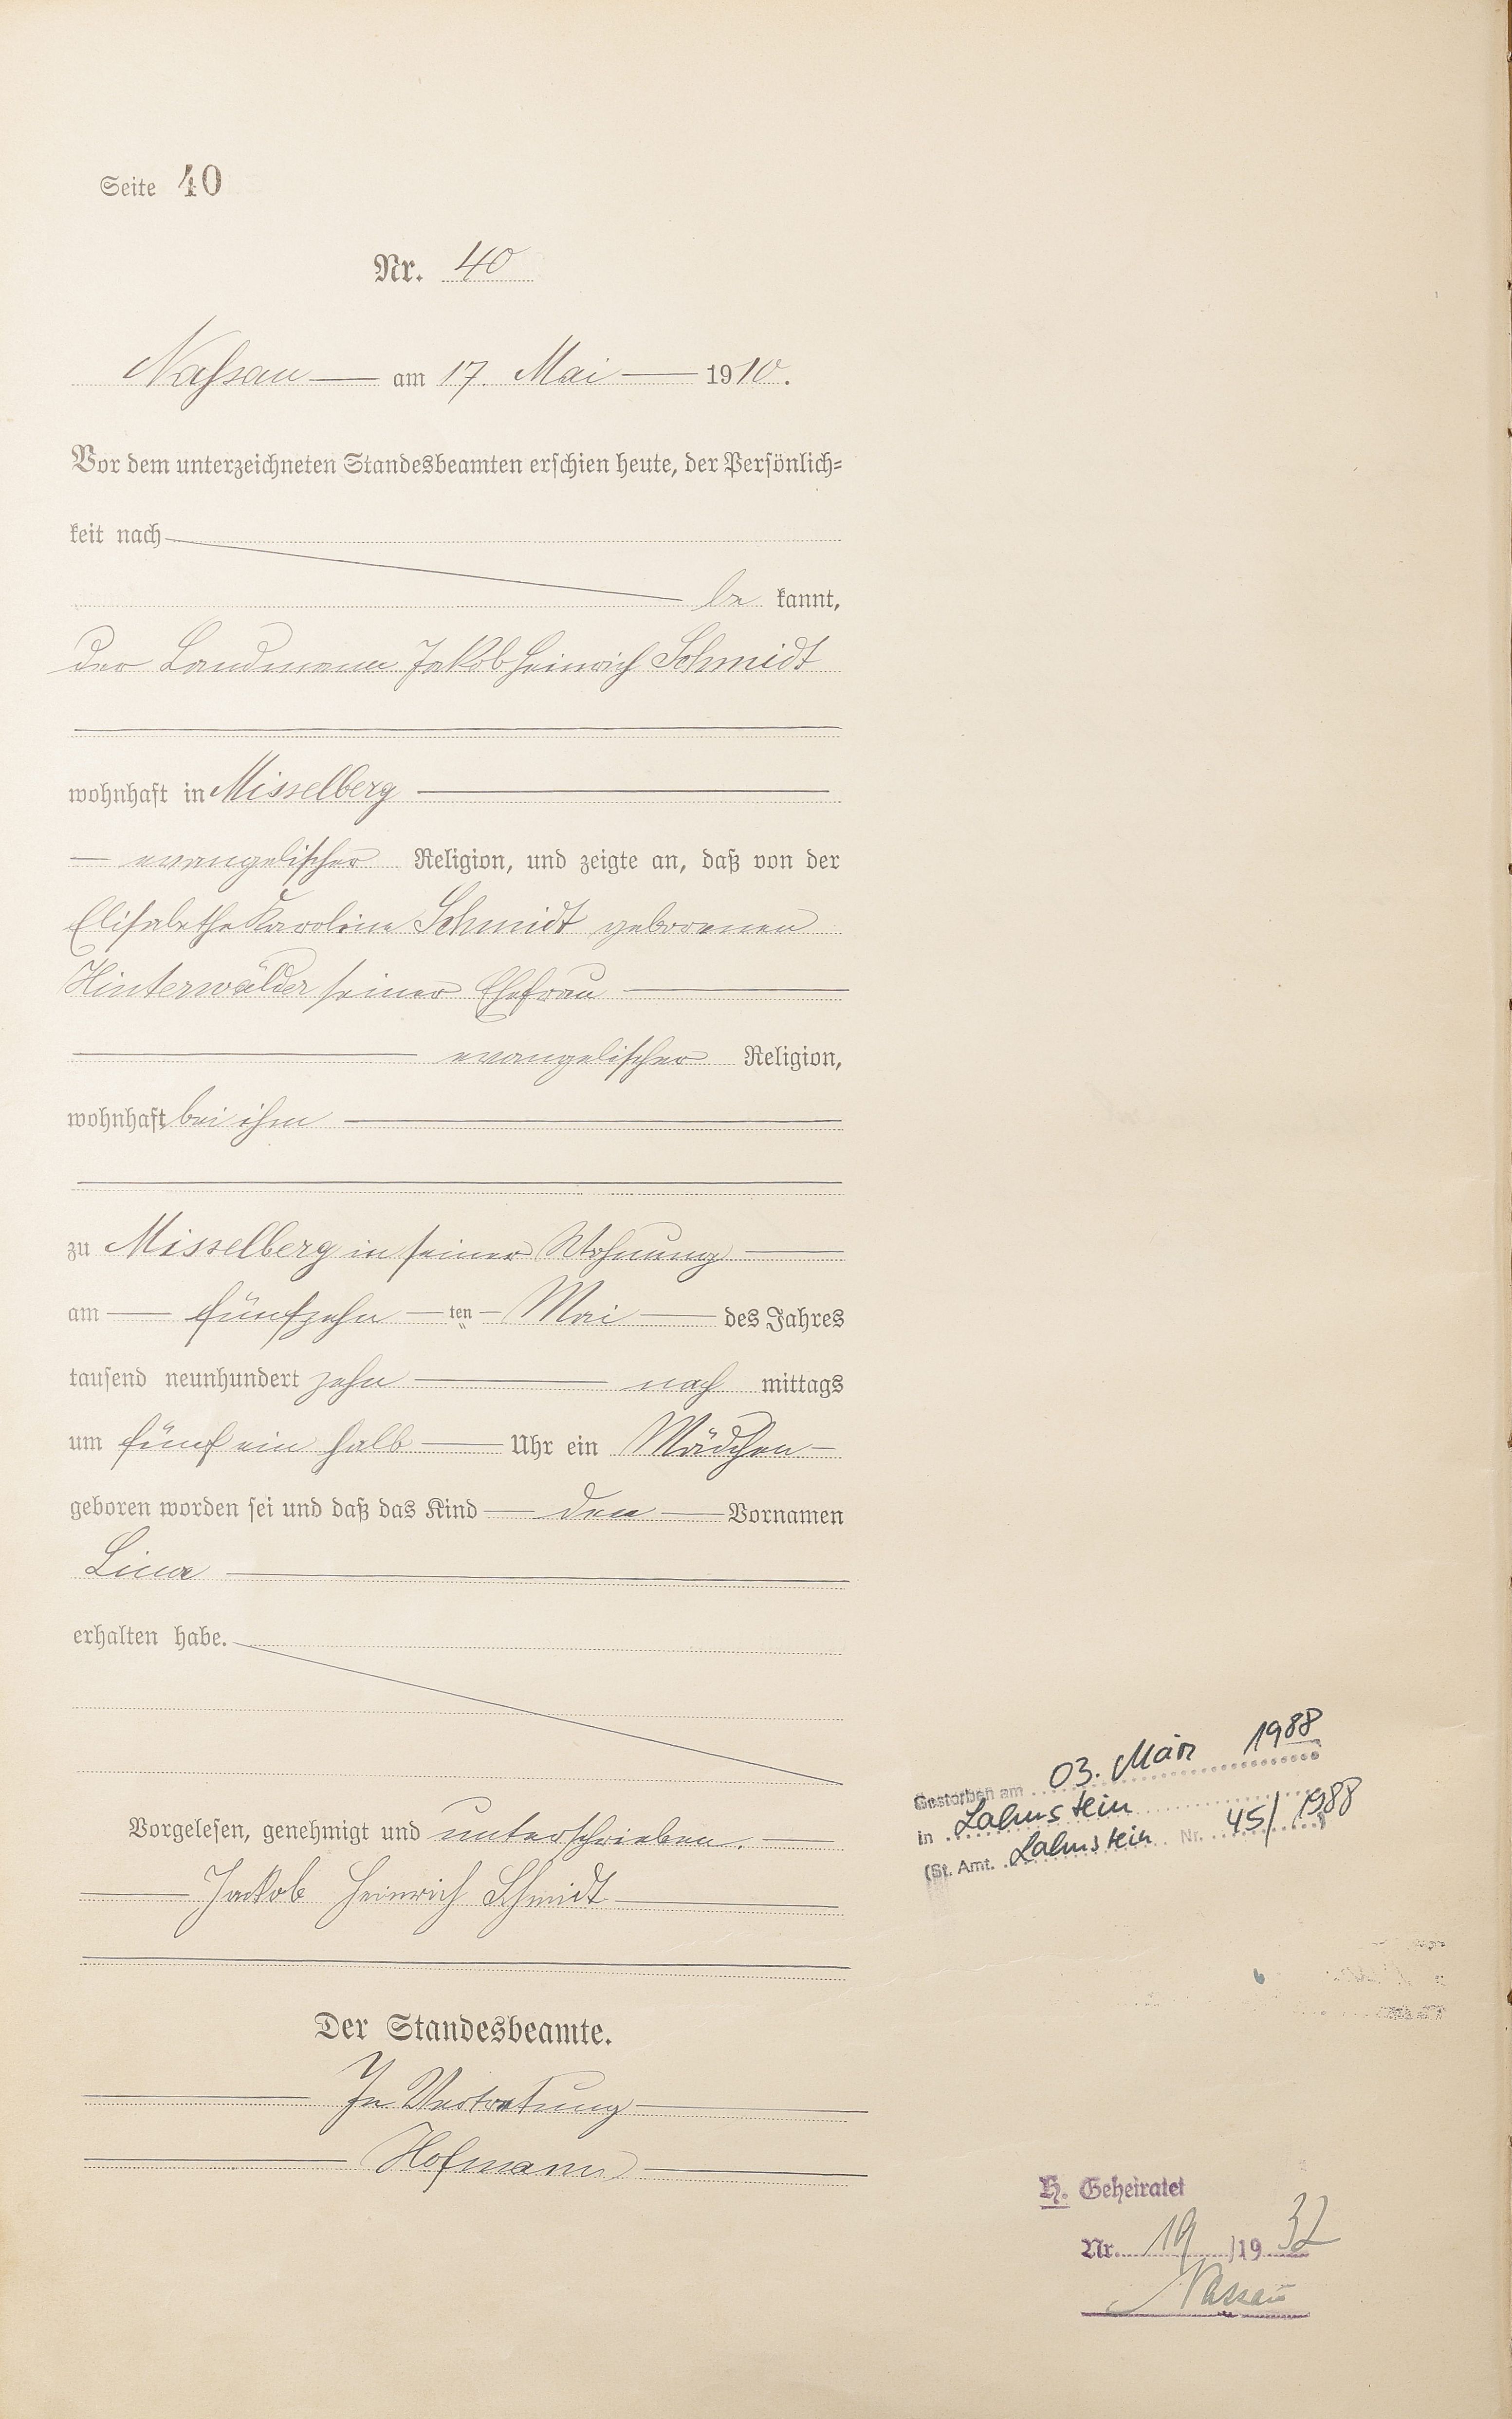 Seite 40
Nr. 40
Nassau am 17. Mai 1910.
Vor dem unterzeichneten Standesbeamten erschien heute, der Persönlich=
keit nach
be kannt,
der Landmann Jakob Heinrich Schmidt
wohnhaft in Misselberg
evangelischer Religion, und zeigte an, daß von der
Elisabethe Karoline Schmidt geborenen
Hinterwälder seiner Ehefrau
evangelischer Religion,
wohnhaft bei ihm
zu Misselberg in seiner Wohnung
am fünfzehn ten Mai des Jahres
tausend neunhundert zehn nach mittags
um fünf ein halb Uhr ein Mädchen
geboren worden sei und daß das Kind den Vornamen
Lina
erhalten habe.
Vorgelesen, genehmigt und unterschrieben.
Jakob Heinrich Schmidt
Der Standesbeamte.
In Vertretung
Hofmann
Gestorben am 03. März 1988
in Lahnstein
(St. Amt. Lahnstein Nr. 45/1988
H. Geheiratet
Nr. 19/1932
Nassau